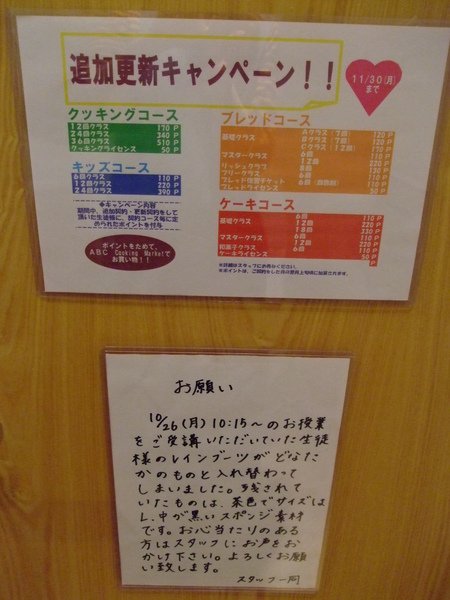 追加更新キャンペーン！！
11/30(月)
まで
クッキングコース
12回クラス 170 P
24回クラス 340 P
36回クラス 510 P
クッキングライセンス 50 P
キッズコース
6回クラス 110 P
12回クラス 220 P
24回クラス 390 P
◆キャンペーン内容
期間中、追加契約・更新契約をして
頂いた生徒様に、契約コース毎に定
められたポイントを付与
ポイントをためて、
ABC Cooking Marketで
お買い物！！
ブレッドコース
基礎クラス
Aクラス(7回) 120 P
Bクラス(7回)
Cクラス(12回) 170 P
マスタークラス 6回 110 P
12回 220 P
リッシュクラス 8回
フリークラス 6回
ブレッドライセンス 50 P
ケーキコース
基礎クラス 6回 110 P
12回 220 P
18回 330 P
マスタークラス 6回 110 P
12回 220 P
和菓子クラス 6回 110 P
ケーキライセンス 50 P
※詳細はスタッフにお尋ねください。
お願い
10/26(月)10:15〜のお授業
をご受講いただいていた生徒
様のレインブーツがどなた
かのものと入れ替わって
しまいました。残されて
いたものは、茶色でサイズは
L、中が黒いスポンジ素材
です。お心当たりのある
方はスタッフにお声をお
かけ下さい。よろしくお願
い致します。
スタッフ一同